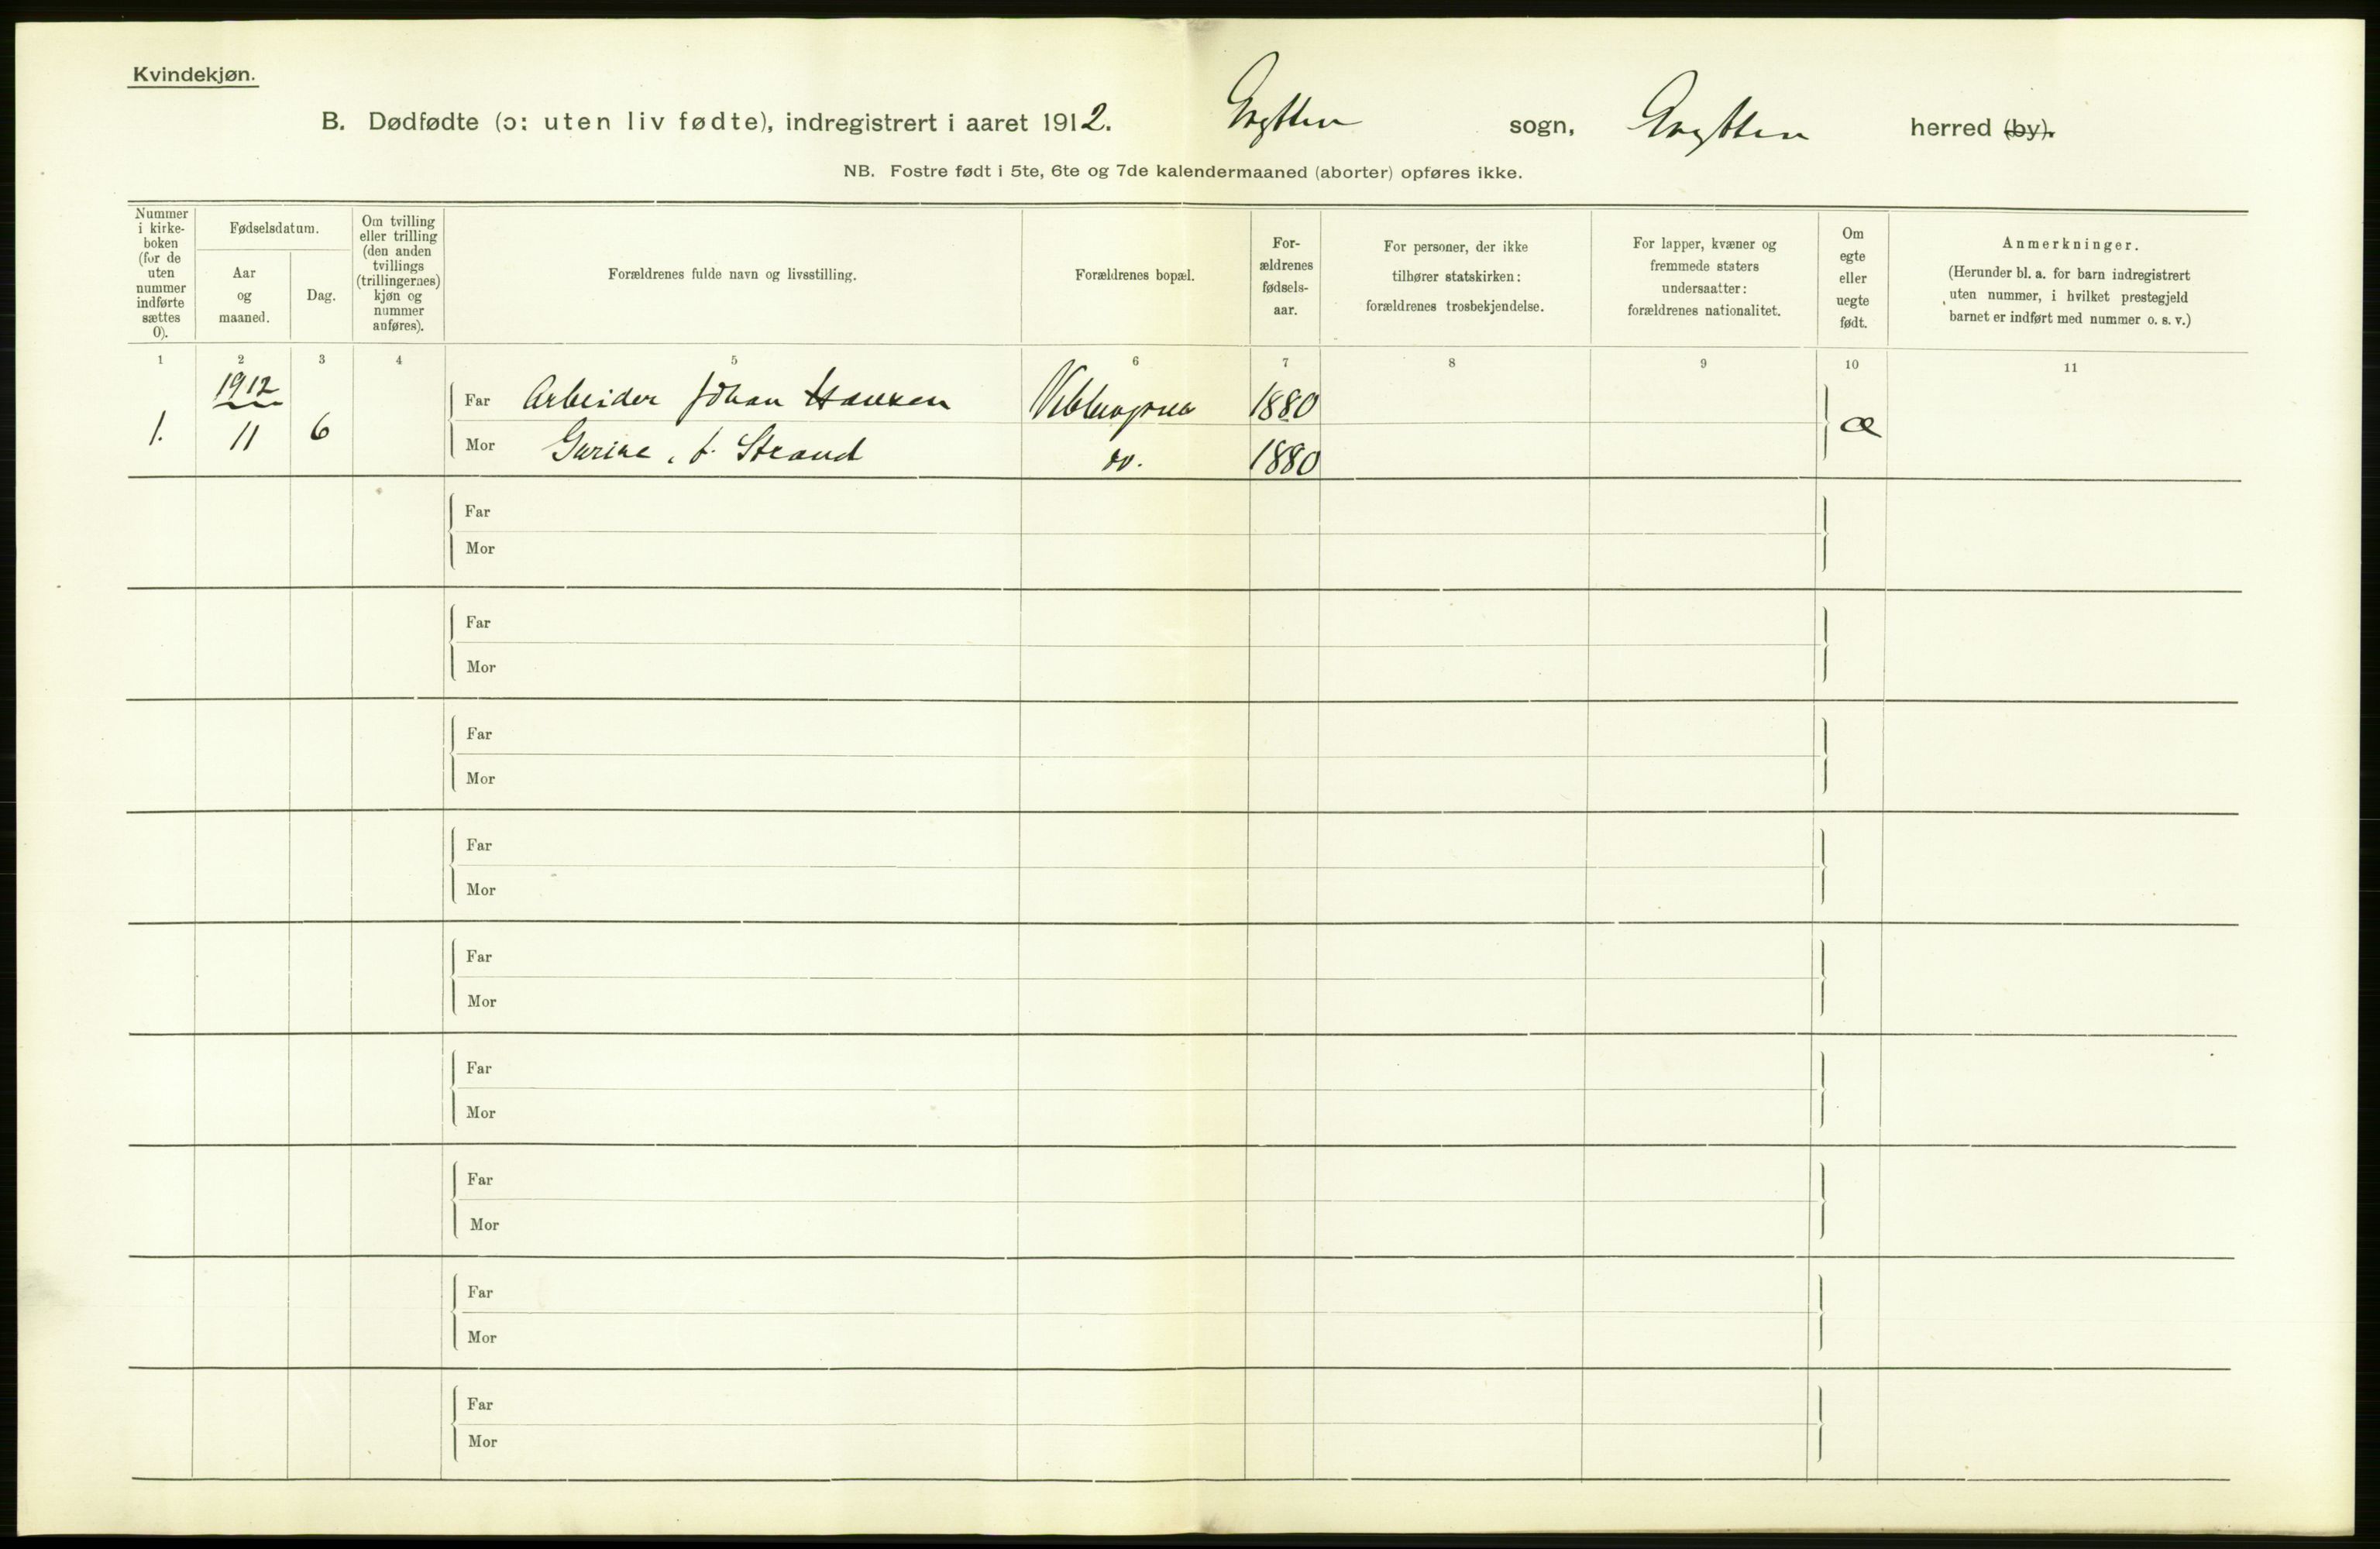 Kvindekjøn.
B. Dødfødte (ɔ: uten liv fødte), indregistrert i aaret 1912. Grytten sogn, Grytten herred (by).
NB. Fostre født i 5te, 6te og 7de kalendermaaned (aborter) opføres ikke.
Nummer i kirke-boken (for de uten nummer indførte sættes 0).
Fødselsdatum.
Aar og maaned.
Dag.
Om tvilling eller trilling (den anden tvillings (trillingernes) kjøn og nummer anføres).
Forældrenes fulde navn og livsstilling.
Forældrenes bopæl.
For-ældrenes fødsels-aar.
For personer, der ikke tilhører statskirken: forældrenes trosbekjendelse.
For lapper, kvæner og fremmede staters undersaatter: forældrenes nationalitet.
Om egte eller uegte født.
Anmerkninger.
(Herunder bl. a. for barn indregistrert uten nummer, i hvilket prestegjeld barnet er indført med nummer o. s. v.)
1 2 3 4 5 6 7 8 9 10 11
1912
Far Arbeider Johan Hansen 1880
1. 11 6 æ
Mor Gurine, f. Strand do. 1880
Far
Mor
Far
Mor
Far
Mor
Far
Mor
Far
Mor
Far
Mor
Far
Mor
Far
Mor
Far
Mor